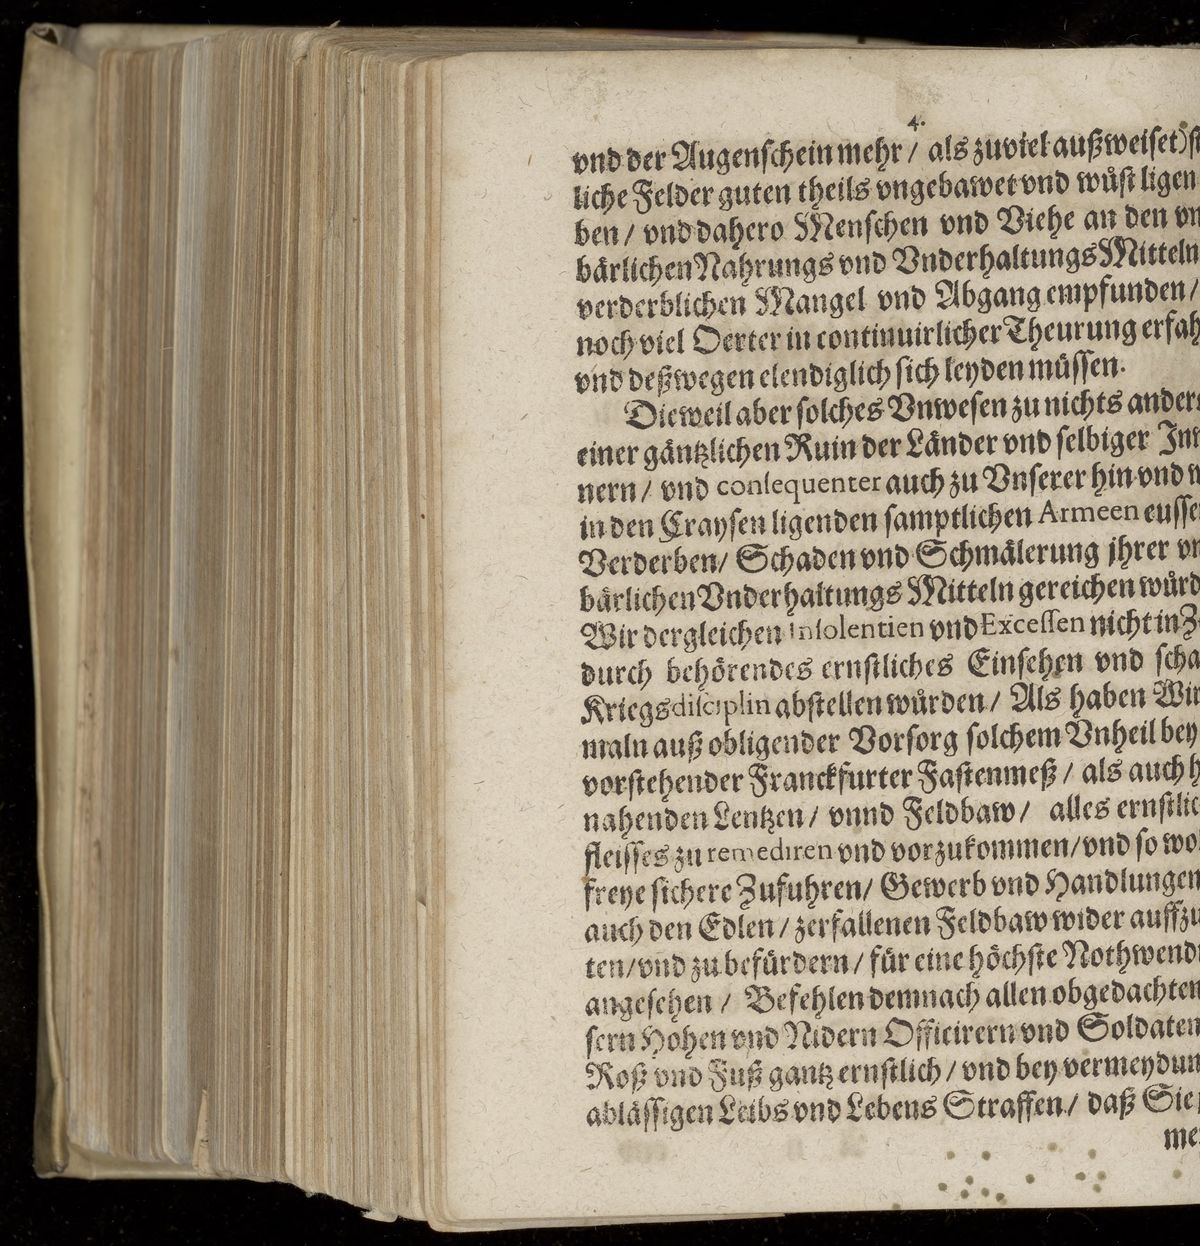 4.
vnd der Augenschein mehr / als zuviel außweiset) 
liche Felder guten theils vngebawet vnd wůst ligen
ben / vnd dahero Menschen vnd Viehe an den
bärlichen Nahrungs vnd Vnderhaltungs Mitteln
verderblichen Mangel vnd Abgang empfunden /
noch viel Oerter in continuirlicher Theurung
vnd deßwegen elendiglich sich leyden müssen.
Dieweil aber solches Vnwesen zu nichts
einer gäntzlichen Ruin der Länder vnd selbiger
nern / vnd consequenter auch zu Vnserer hin vnd
in den Craysen ligenden samptlichen Armeen
Verderben / Schaden vnd Schmälerung jhrer
bärlichen Vnderhaltungs Mitteln gereichen
Wir dergleichen Insolentien vnd Excessen nicht in
durch behörendes ernstliches Einsehen vnd
Kriegsdisciplin abstellen wůrden / Als haben Wir
maln auß obligender Vorsorg solchem Vnheil bey
vorstehender Franckfurter Fastenmeß / als auch
nahenden Lentzen / vnnd Feldbaw / alles
fleisses zu remediren vnd vorzukommen / vnd so
freye sichere Zufuhren / Gewerb vnd Handlungen
auch den Edlen / zerfallenen Feldbaw wider
ten / vnd zu befürdern / für eine höchste
angesehen / Befehlen demnach allen obgedachten
sern Hohen vnd Nidern Officirern vnd Soldaten
Roß vnd Fuß gantz ernstlich / vnd bey
ablässigen Leibs vnd Lebens Straffen / daß Sie